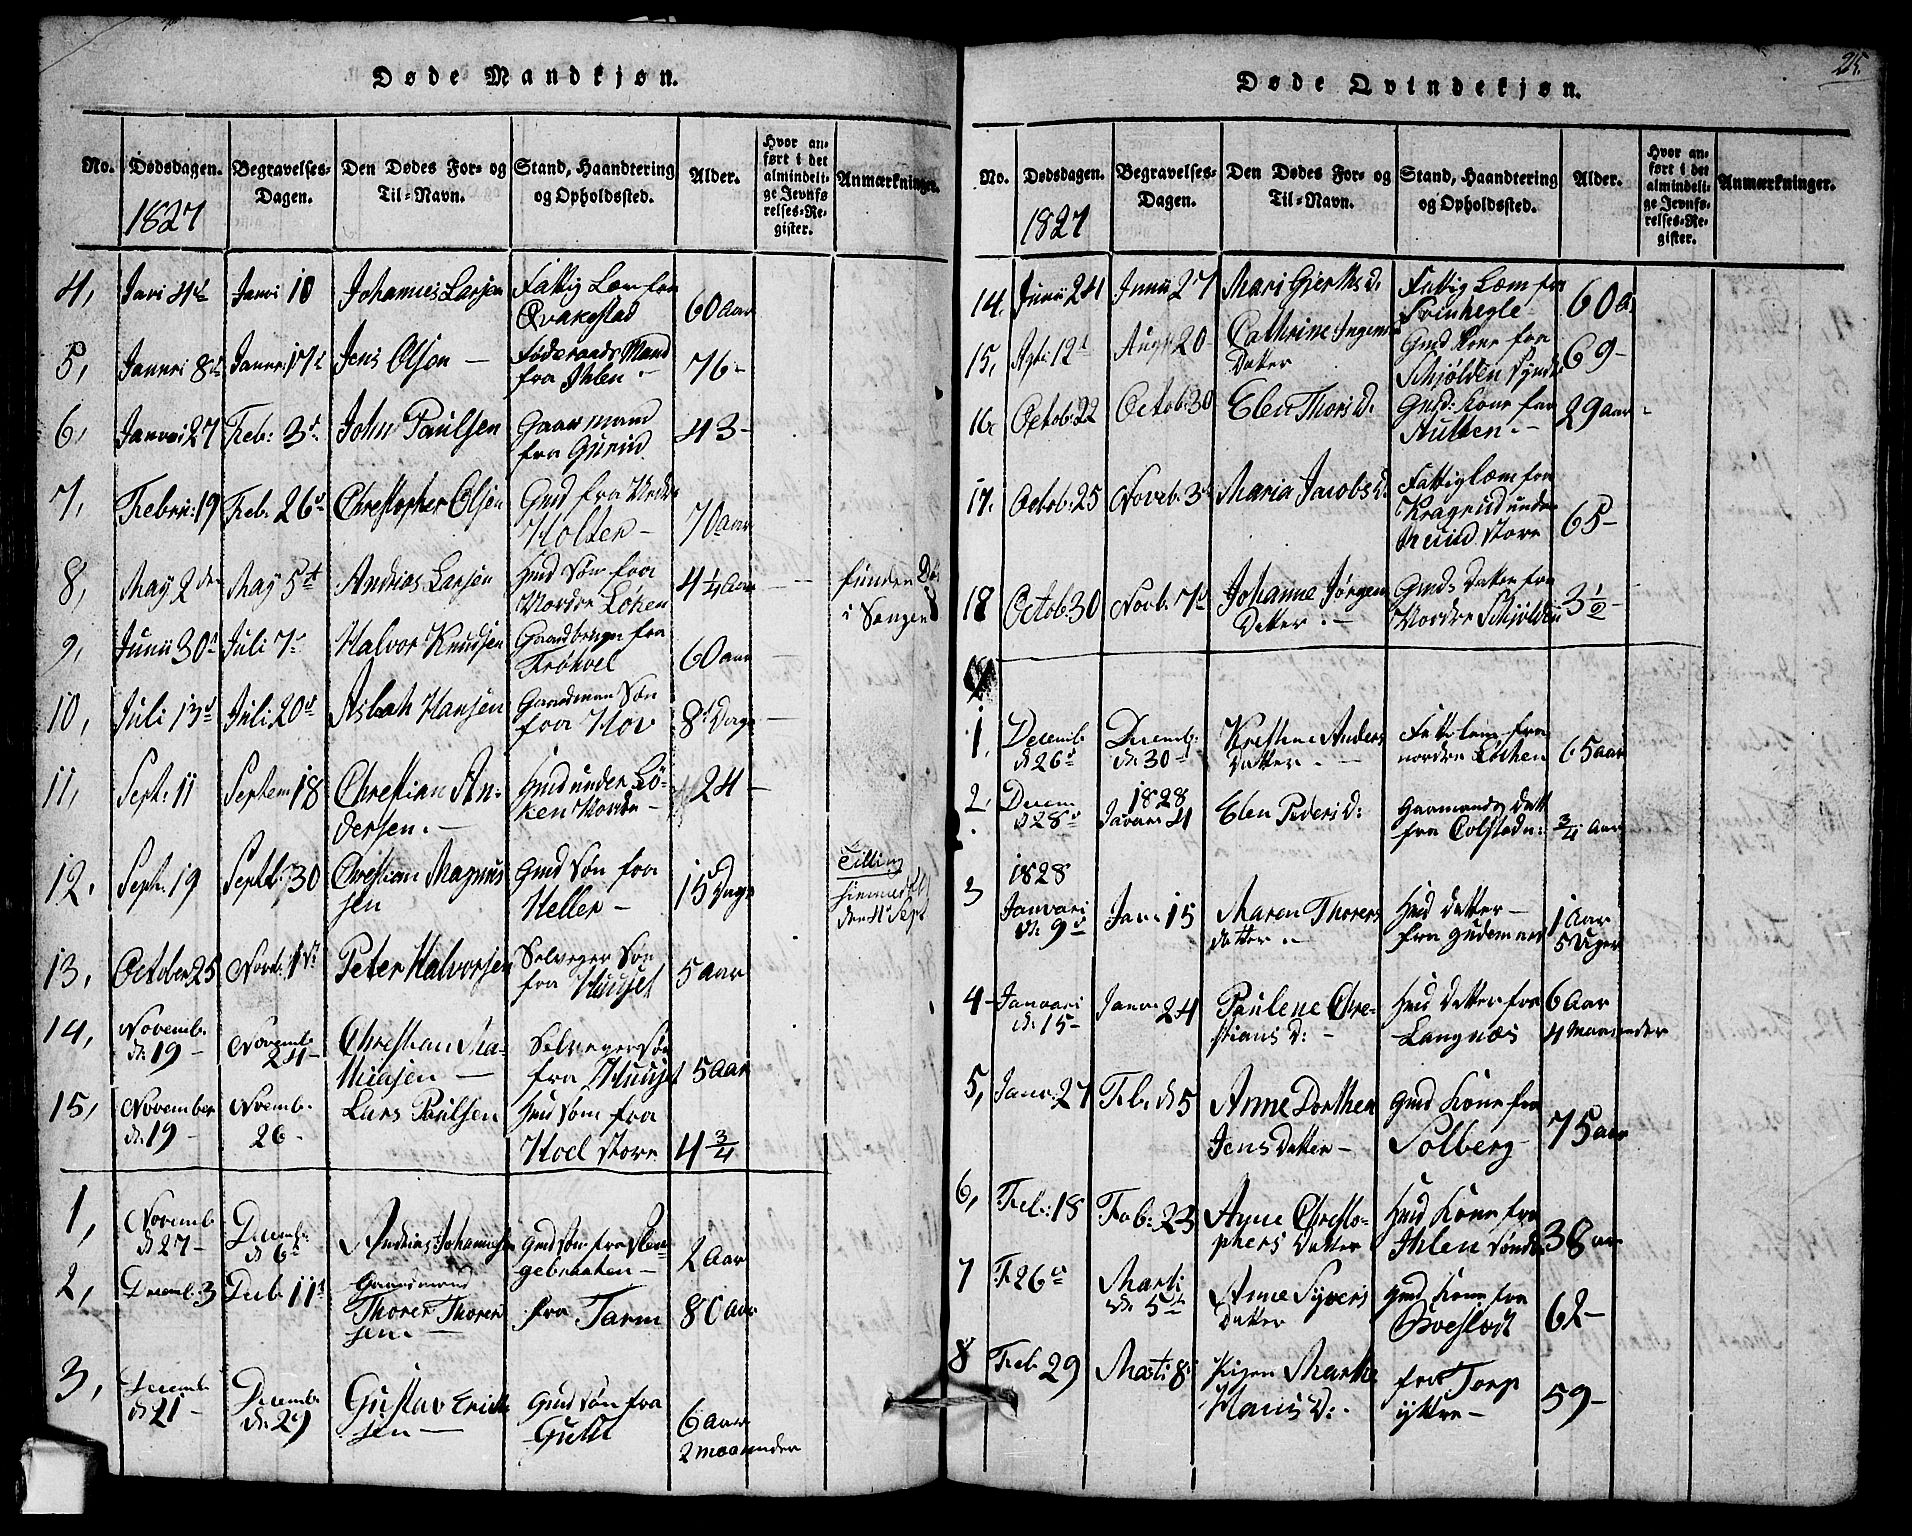 Døde Mandkjøn.
No.
Dødsdagen.
1827
Begravelses-
Dagen.
Den Dødes For- og
Til-Navn.
Stand, Haandtering
og Opholdssted.
Alder.
Hvor an-
ført i det
almindeli-
ge Jevnfø-
relses-Re-
gister.
Anmærkninger.
4, Janri 4de Janri 10 Johannes Larsen Fattig Læm fra
Qvakestad 60 Aar
5, Januri 8de Januri 17de Jens Olsen — Føderaads Mand
fra Ihlen 76-
6, Januri 27 Feb: 3d John Paulsen Gaarmand
fra 43-
7, Febru: 19 Feb. 26d Christopher Olsen Gmd fra Neder
Holter — 70 aar
8, May 2den May 5te Andrias Larsen Hmd Søn fra
Nordre Løken 4 1/4 Aar funden Død
i Sengen
9, Junii 30d Juli 7de Halvor Knudsen Gaardbruger fra
60 aar
10, Juli 13d Juli 20d Hansen Gaardman Søn
fra Hov 8d Dage
11, Sept: 11 Septem 18 Christian An-
dersen. — Hmd under Lø-
ken Nordre — 24 —
12. Sept: 19 Septb: 30 Christian Magnus
sen Gmd Søn fra
Heller — 15 Dage Tilling
13, October 25 Novb: 1ste Peter Halvorsen Selveger Søn
fra Huuset 5 Aar
14, Novemb.
d. 19 — Novemb
24 — Christian Ma-
thiasen — Selvegersøn
fra Huuset 5 Aar
15, November
d. 19 — Noemb.
26 - Lars Paulsen Hmd Søn fra
Hoel store 4 3/4
1, Novemb
d 27 — Decemb:
d. 6te Andrias Johannesen Gmd Søn fra Slen-
gebraaten — 2 Aar
2, Decemb: 3 Decb. 11te Gaardmand
Thorer Thorer
sen — fra Tarm 80 Aar
3, Decemb.
d. 21 — Decemb
d. 29 Gustav Erich
sen — Gmd Søn fra
6 Aar
2 maaneder
25.
Døde Qvindekjøn.
No.
Dødsdagen.
1827
Begravelses-
Dagen.
Den Dødes For- og
Til-Navn.
Stand, Haandtering
og Opholdssted.
Alder.
Hvor an-
ført i det
almindeli-
ge Jevnfø-
relses-Re-
gister.
Anmærkninger.
14. Junii 21 Junii 27 Mari D. Fattig Læm fra
60 a
15, 12te Aug: 20 Cathrine Ingens
Datter Gmd Kone fra
Schjølden Syndre 69-
16. Octob: 22 Octob: 30 Elen Thors D. Gmd: Kone fra
29 aar
17. Octob: 25 Noveb. 3de Maria Jacobs D. Fattig Læm fra
Kragerud under
store 65 —
18 Octob 30 Novb. 7de Johanne Jørgen
Datter. — Gmds Datter fra
Nordre Schjølden 3 1/2 -
1. Decemb
d. 26d Decemb:
d. 30 — Kristine Anders
Datter. — Fattiglem fra
nordre Løchen 65 aar
2. Decem
d 28d 1828
Januari 4 Elen Peders D: Gaarmands Datt
fra Colstadn: 3/4 Aar
3 1828
Januari
d. 9de Janr 15 Maren Thorers
datter. — Hmd Datter —
fra Gudemner 1 Aar
5 Uger
4 — Januari
d. 15 — Janr 24 Paulene Chre-
stians D: — Hmd Datter fra
Langnæs 6 Aar
4 Maaneder
5, Janr: 27 Feb. d 5 Anne Dorthea
Jens Datter — Gmd Kone fra
Solberg 75 aar
6, Feb: 18 Feb: 23 Anne Christo-
phers Datter Hmd Kone fra
Ihlen Søndre 38 aar
7 F. 26de Marti
d. 5te Anne Syvers
Datter Gmd Kone fra
62 —
8 Feb. 29 Marti 8de Pigen Marthe
Hans D: fra Torp
yttre — 59 —